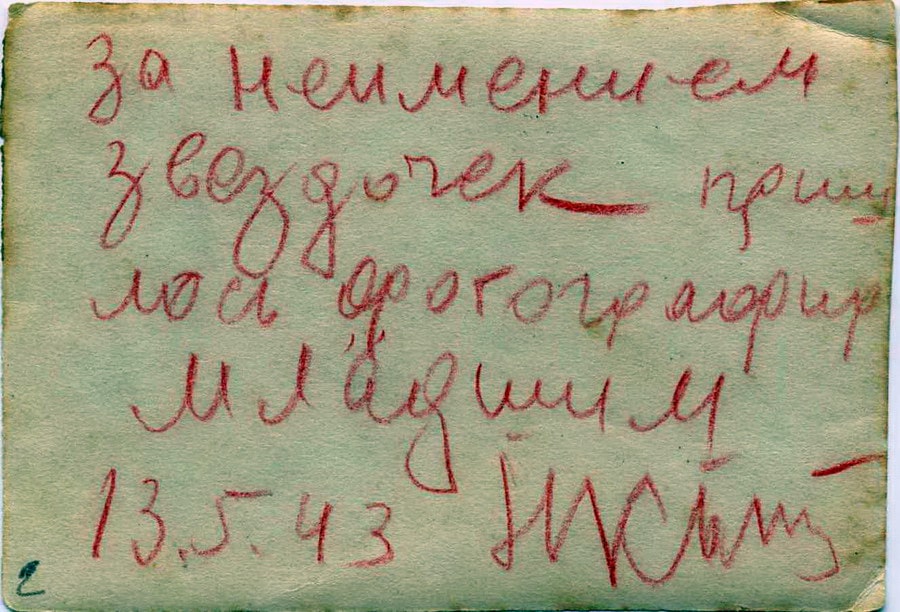 за неимением
звездочек приш
лось фотографир
младшим
13.5.43
2